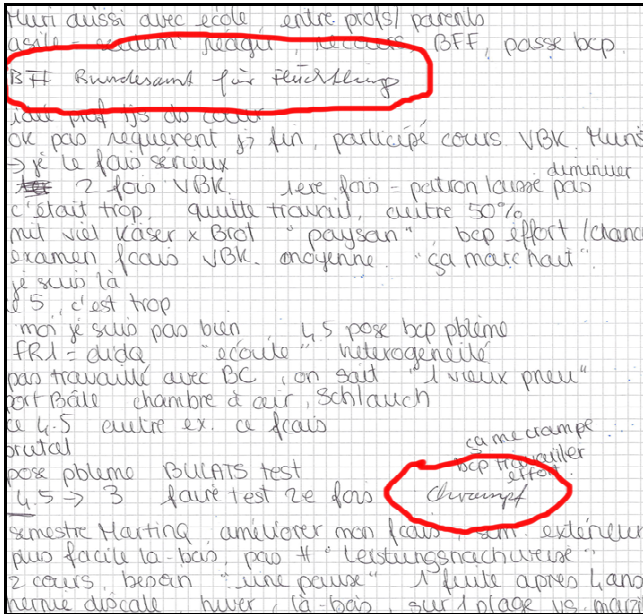 Muri aussi avec école entre profs/ parents
asile = système réagir, recours BFF, passe bcp.
BFF Bundesamt für Flüchtling
prof tjs du coeur
ok pas requérent js fin, participé cours VBK. Muri
→ je le fais sérieux
diminuer
2 fois VBK. 1ere fois = patron laisse pas
c'était trop, quitte travail, autre 50%
mit viel Käser x Brot "paysan", bcp effort /chance
examen fcais VBK. moyenne. "ça marchait".
je suis là
5, c'est trop
moi je suis pas bien, 4,5 pose bcp pblème
FR1 = dida "écoute" hétérogeneité
pas travaillé avec BC, on sait "1 vieux pneu"
port Bâle chambre à air, Schlauch
ce 4.5 autre ex. ce fcais
brutal
ça me crampe.
bcp travailler
effort.
pose pblème BULATS test
4.5 → 3 faire test 2e fois Chrampf
semestre Martina, améliorer mon fcais, extérieur
plus facile là-bas, pas # "Leistungsnachweise"
2 cours, besoin "une pause" 1 fuite après 4 ans
hernie discale hiver, là-bas, sur 1 plage vs. maison